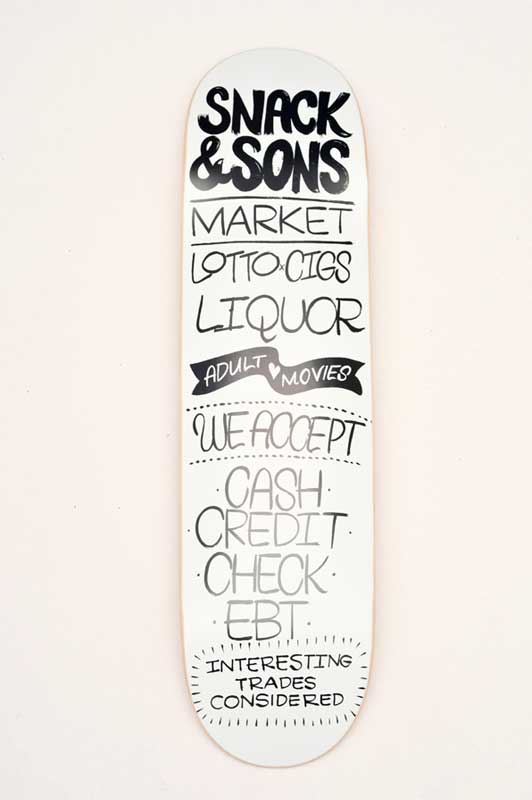 SNACK
&SONS
MARKET
LOTTO·CIGS
LIQUOR
ADULT ♥ MOVIES
WE ACCEPT
·CASH·
·CREDIT·
·CHECK·
·EBT·
INTERESTING
TRADES
CONSIDERED